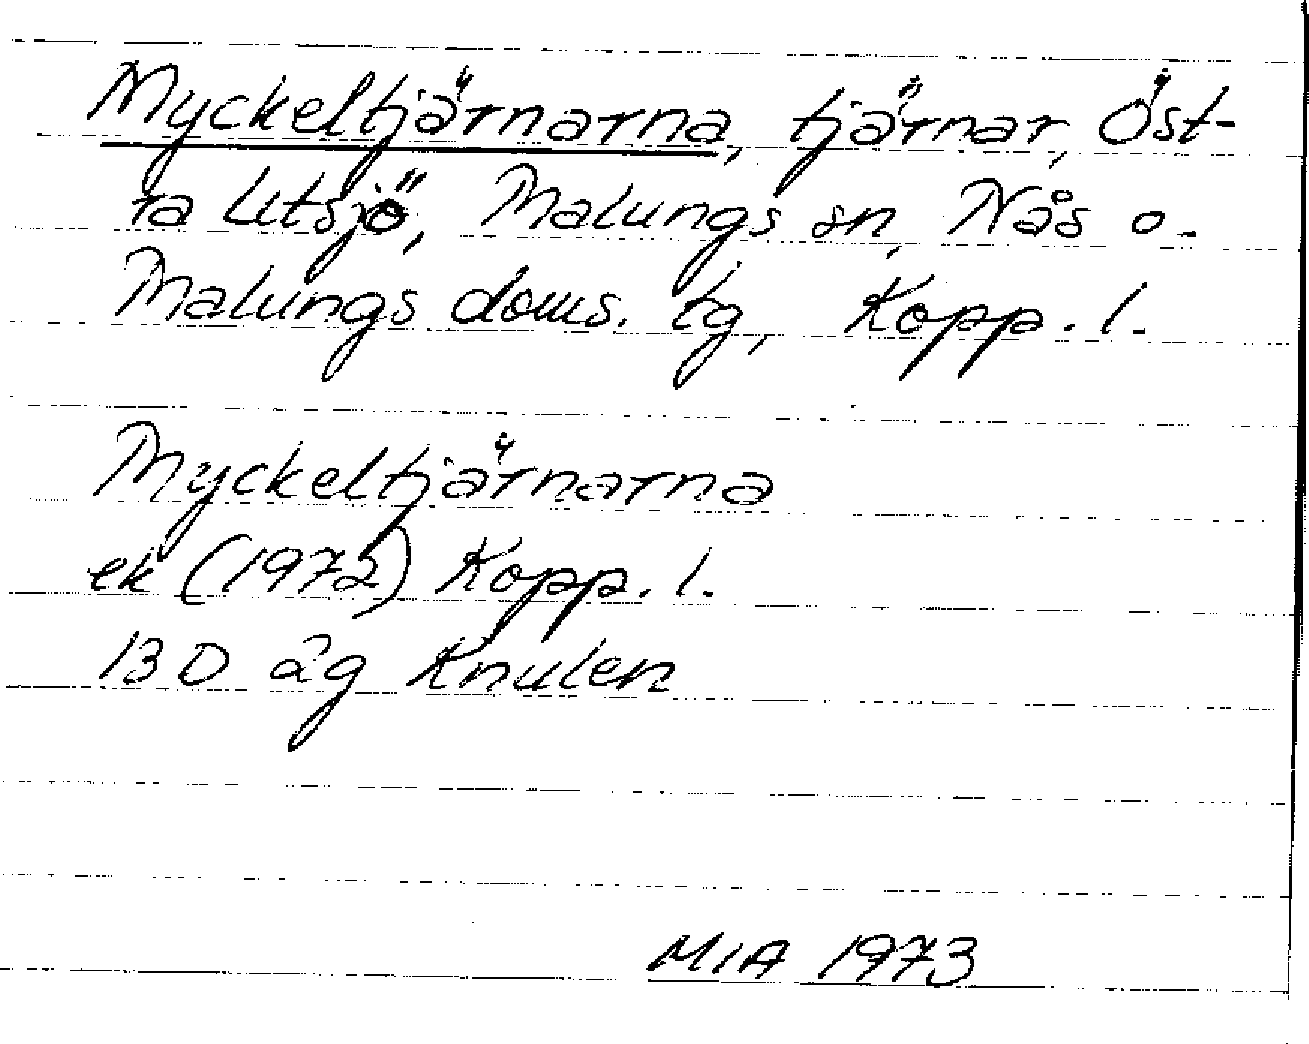 Myckeltjärnarna, tjärnar, Öst-
ra Utsjö, Malungs sn, Nås o.
Malungs doms. tg, Kopp. l.
Myckeltjärnarna
ek (1972) Kopp. l.
13 D 2g Knulen
MIA 1973